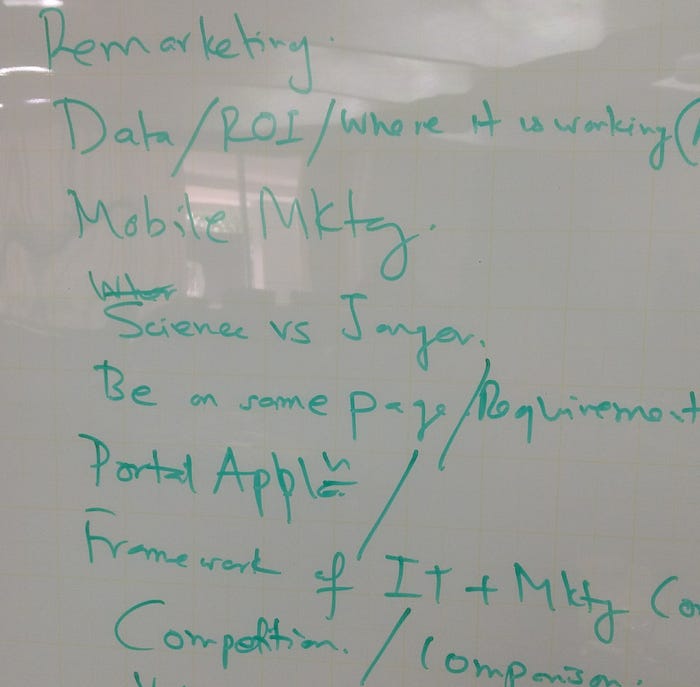 Remarketing.
Data/ROI/Where it is working(
Mobile Mktg.
Science vs Jargon.
Be on same page/Requirement
Portal Appl
Framework of IT + Mktg Co
Competition. / Comparison.